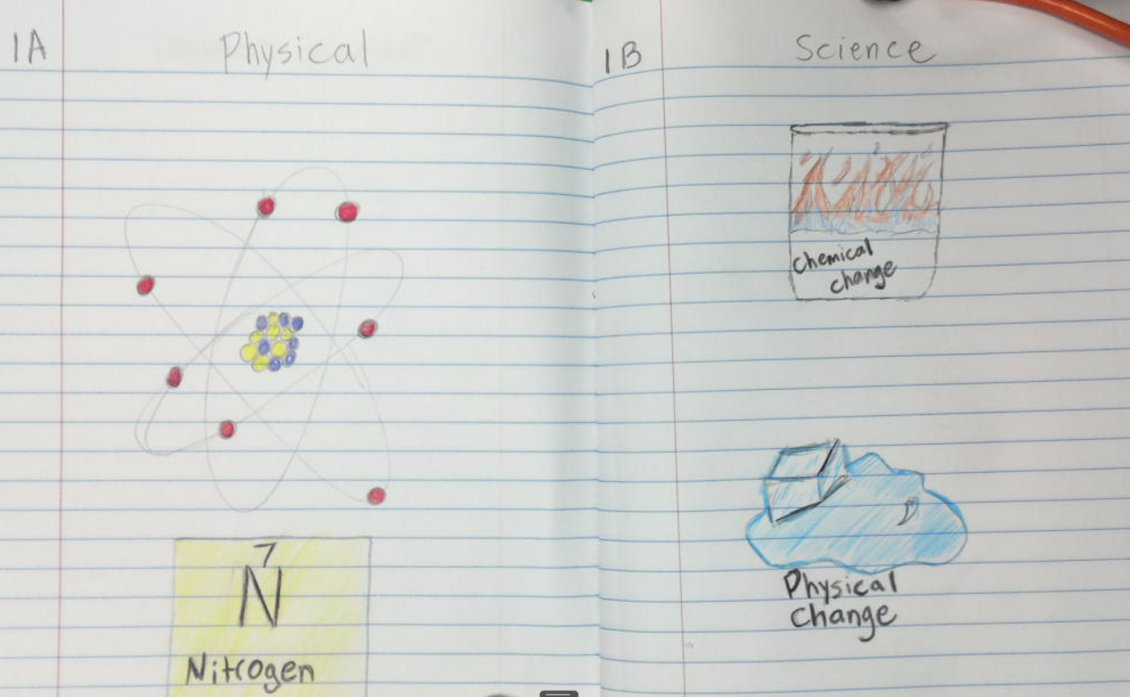 1A
Physical
7
N
Nitrogen
1B
Science
Chemical
change
Physical
Change